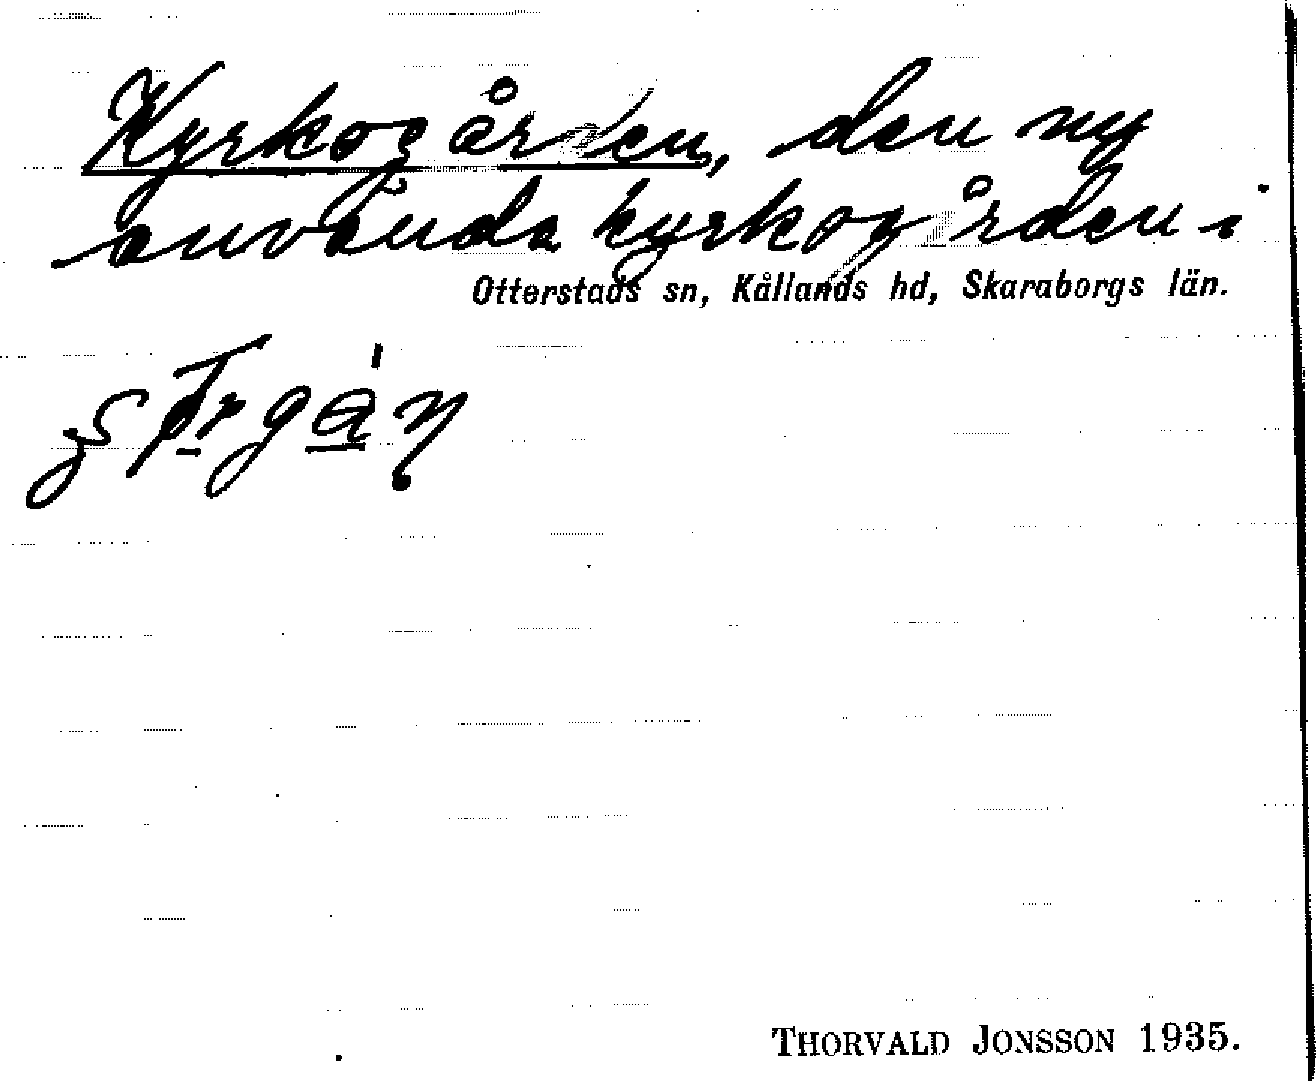 Kyrkogården, den ny
använda kyrkogården i
Otterstads sn, Kållands hd, Skaraborgs län.
THORVALD JONSSON 1935.